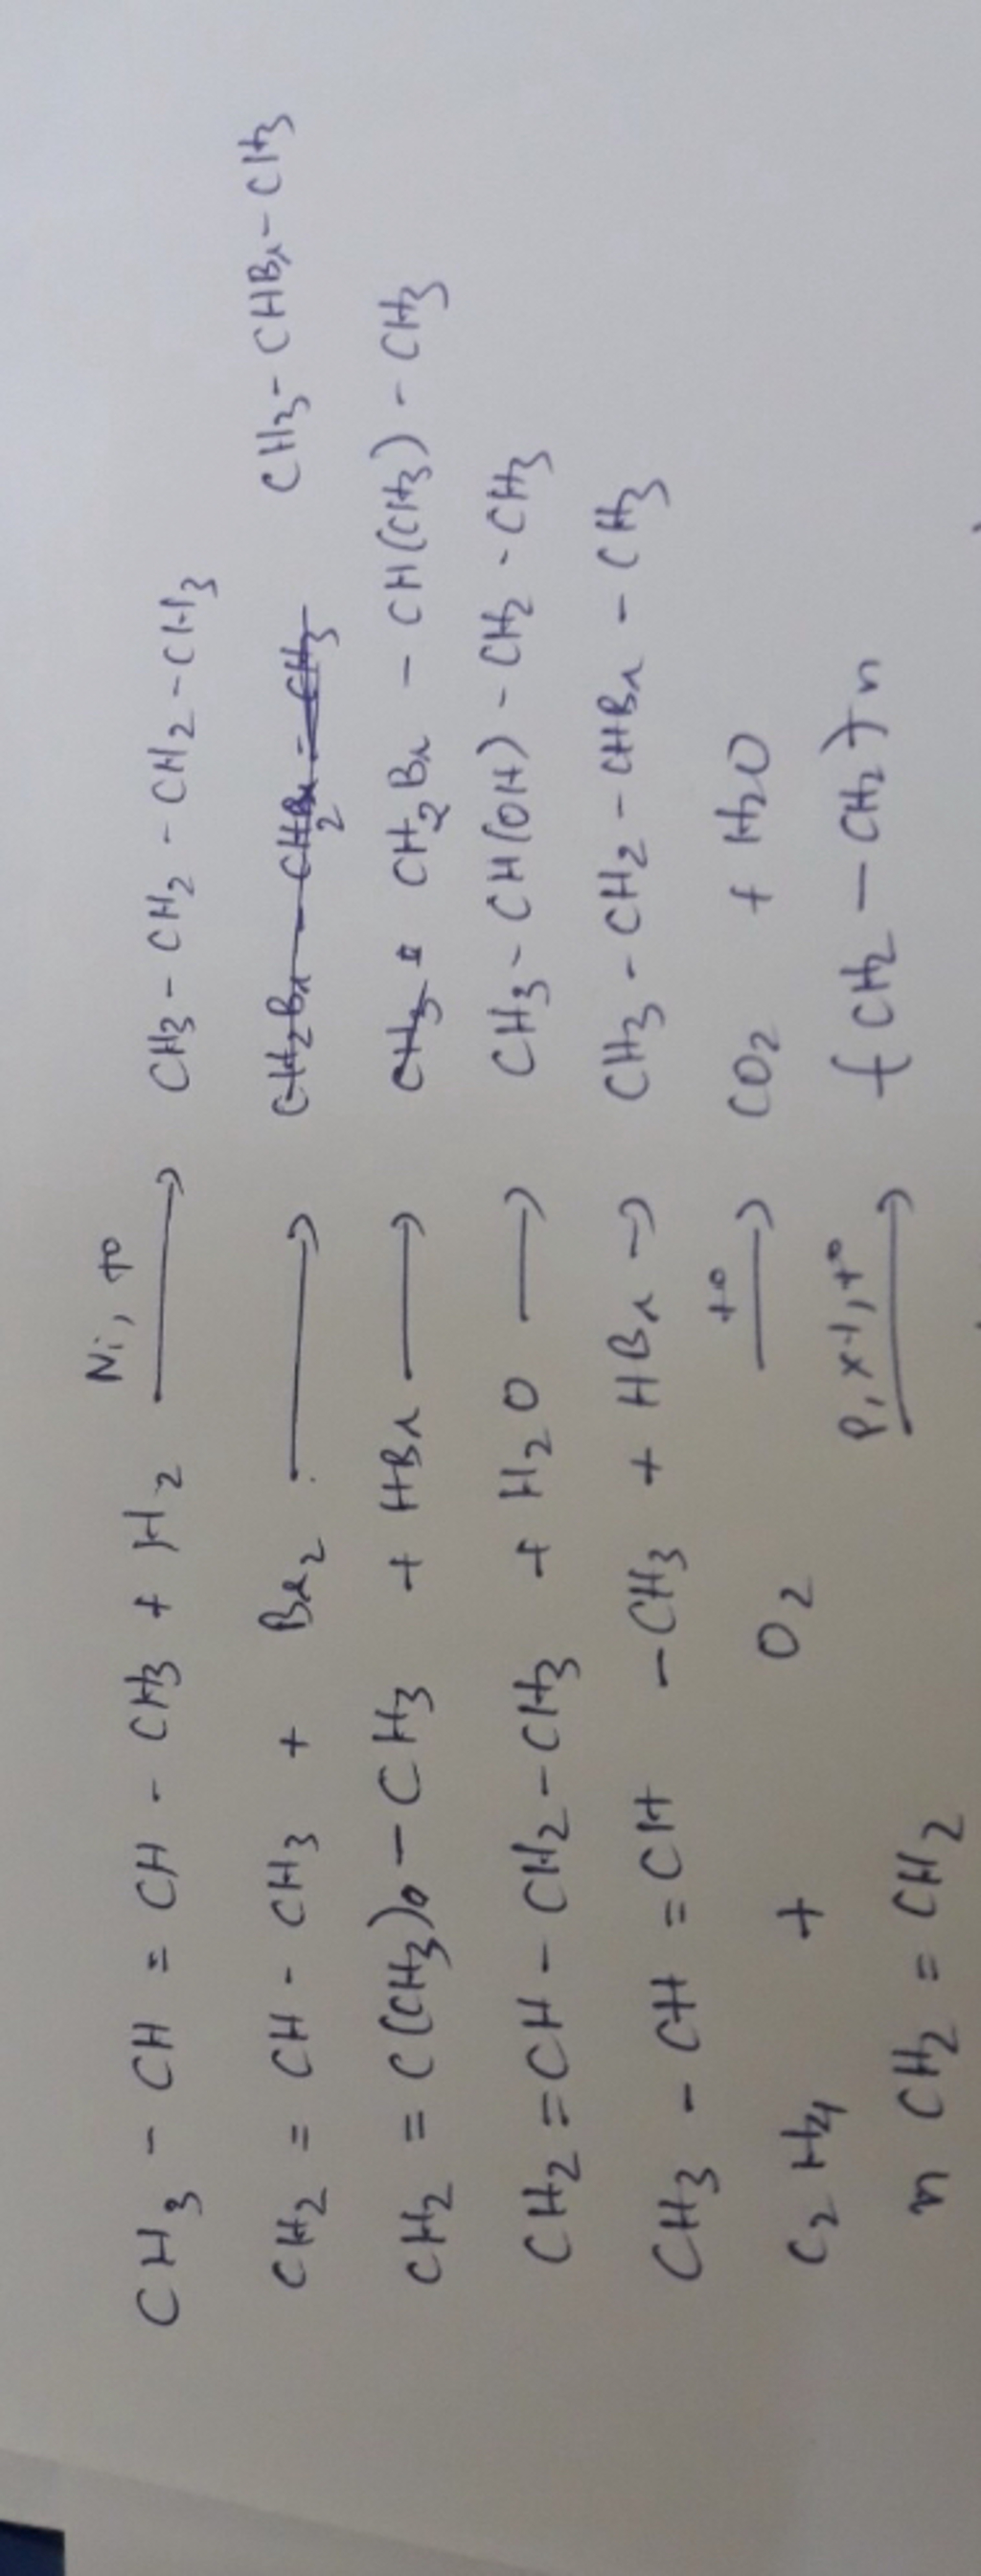 CH3 - CH = CH - CH3 + H2 Ni, t° ⟶ CH3 - CH2 - CH2 - CH3
CH2 = CH - CH3 + Br2 ⟶ CH2Br - CHBr2 - CH3 CH3 - CHBr - CH3
CH2 = C(CH3) - CH3 + HBr ⟶ CH3 CH2Br - CH(CH3) - CH3
CH2 = CH - CH2 - CH3 + H2O ⟶ CH3 - CH(OH) - CH2 - CH3
CH3 - CH = CH - CH3 + HBr → CH3 - CH2 - CHBr - CH3
C2H4 + O2 t° ⟶ CO2 + H2O
n CH2 = CH2 P, xt, t° ⟶ (CH2 - CH2)n